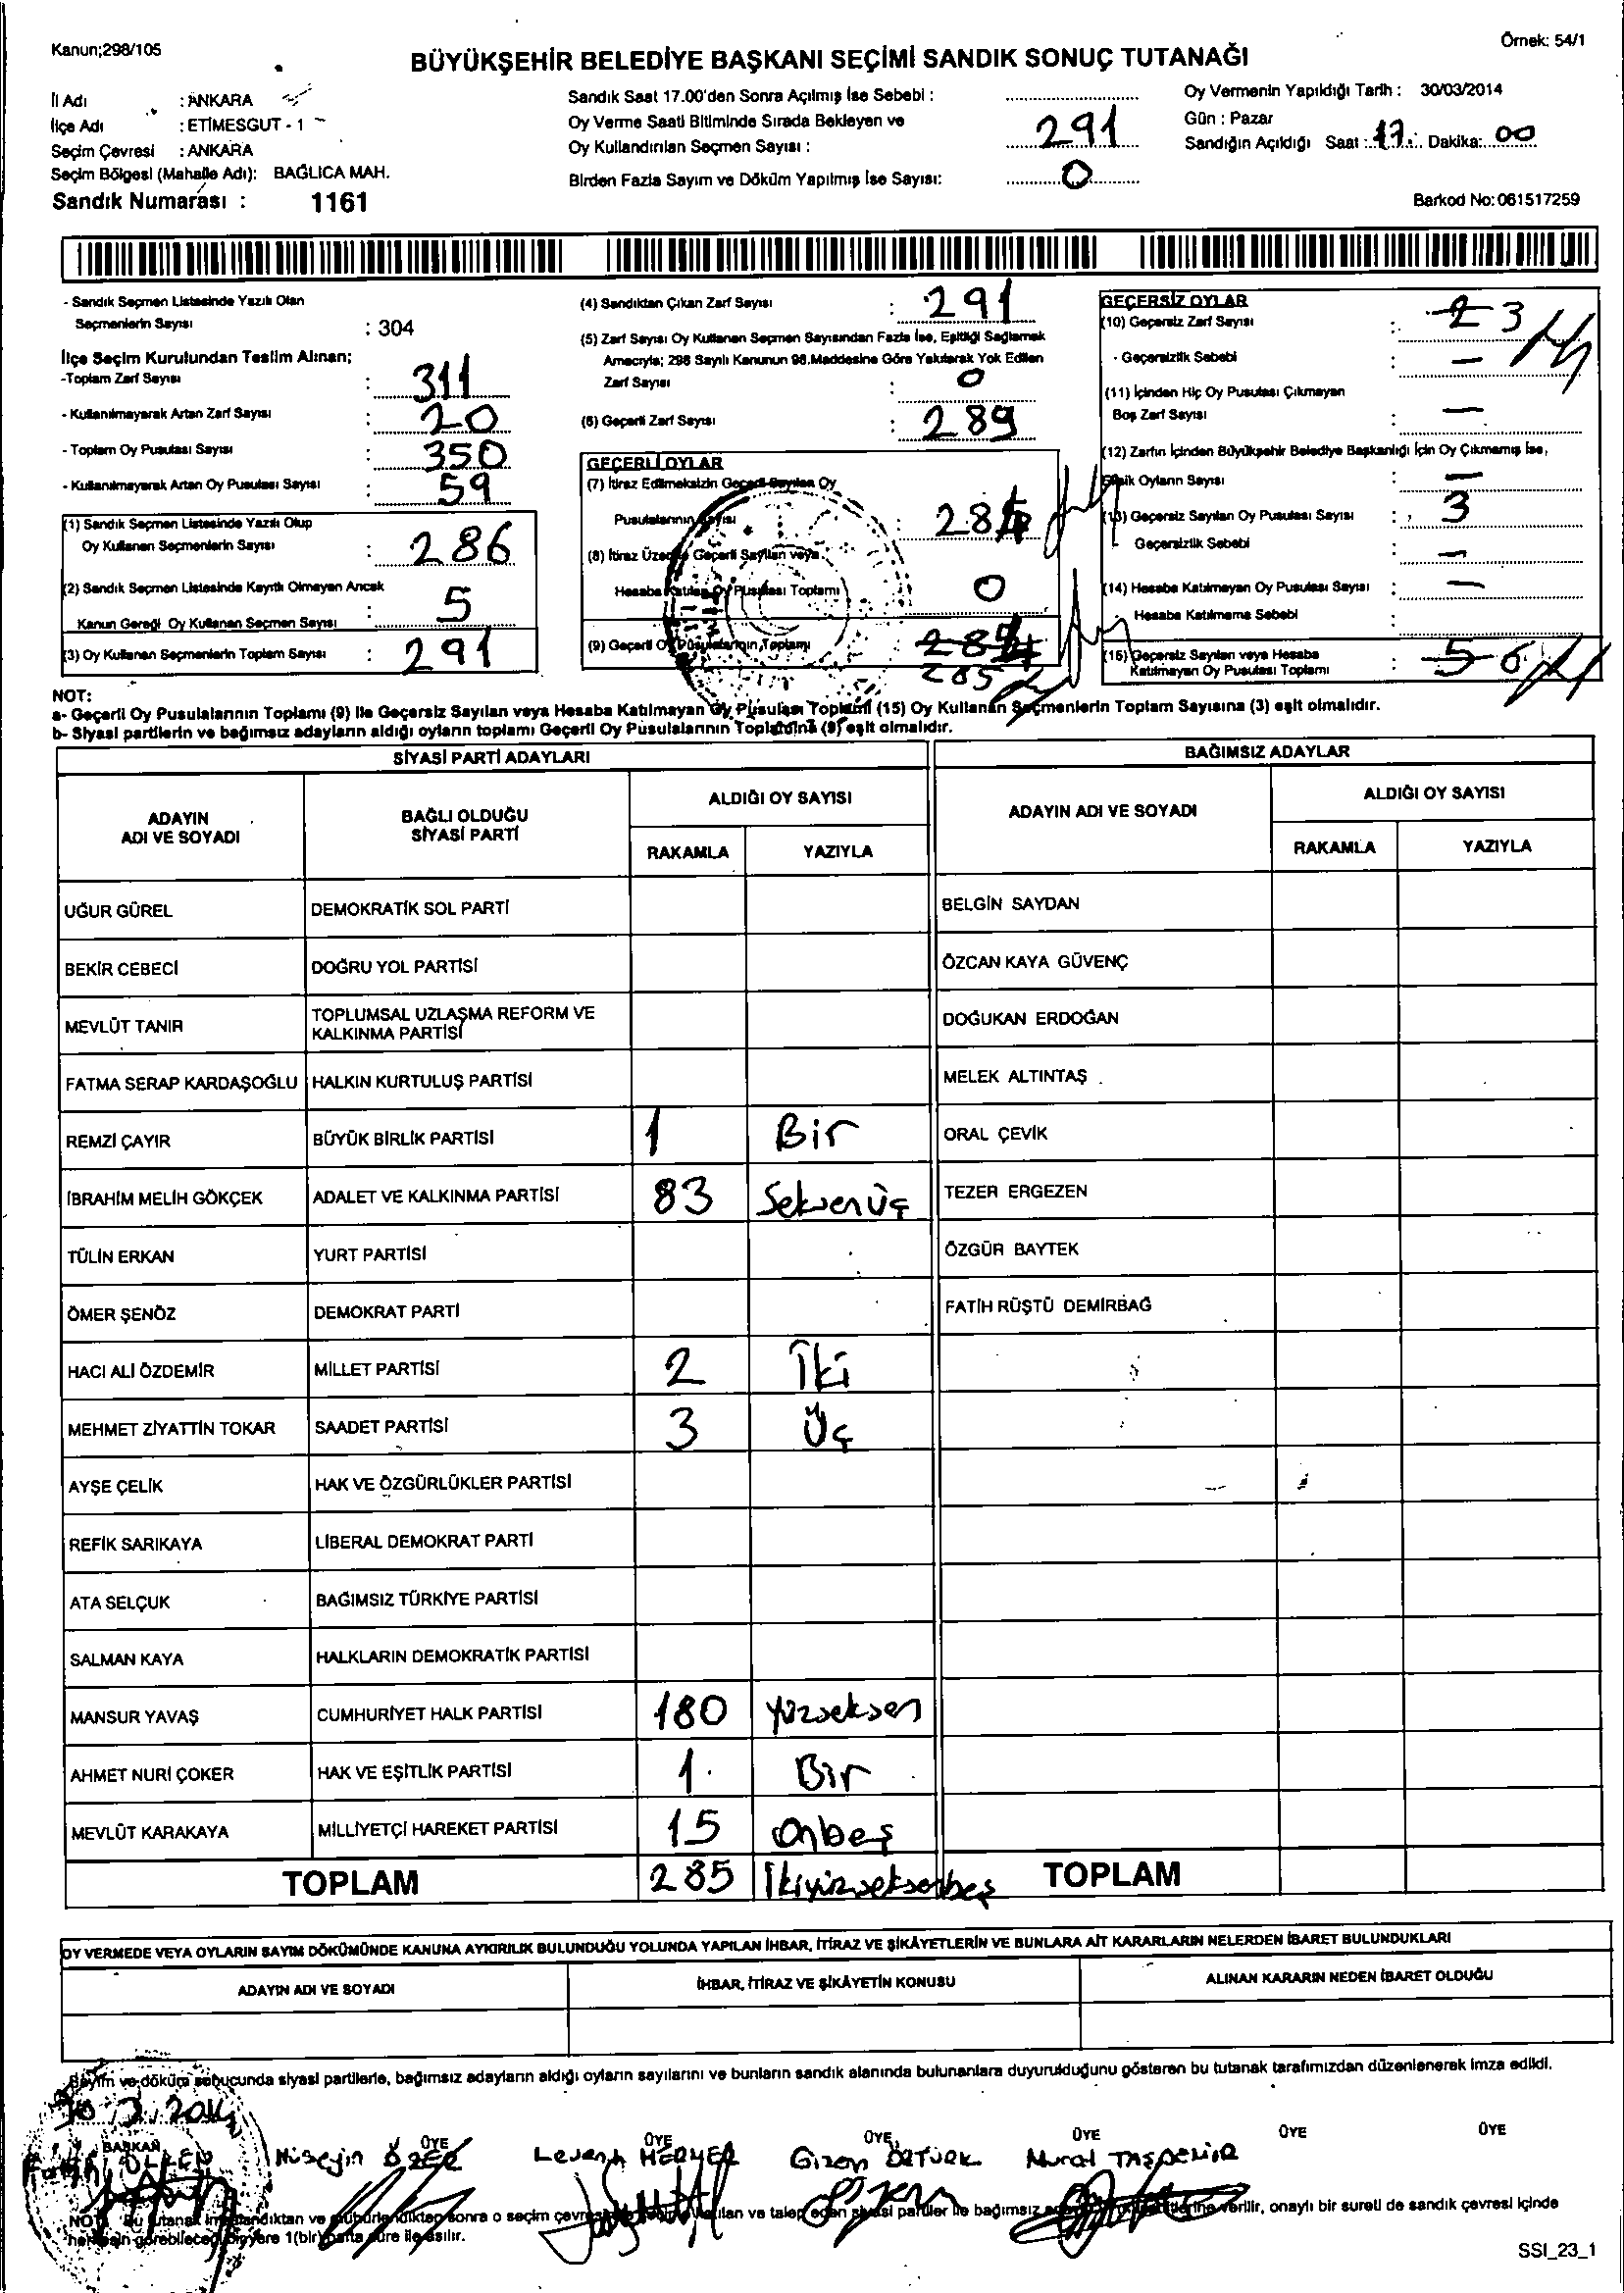 Kanun;298/105
Örnek: 54/1
BÜYÜKŞEHİR BELEDİYE BAŞKANI SEÇİMİ SANDIK SONUÇ TUTANAĞI
İl Adı : ANKARA
İlçe Adı : ETİMESGUT - 1
Seçim Çevresi : ANKARA
Seçim Bölgesi (Mahalle Adı): BAĞLICA MAH.
Sandık Numarası : 1161
Sandık Saat 17.00'den Sonra Açılmış İse Sebebi :
Oy Verme Saati Bitiminde Sırada Bekleyen ve
Oy Kullandırılan Seçmen Sayısı : 291
Birden Fazla Sayım ve Döküm Yapılmış İse Sayısı: 0
Oy Vermenin Yapıldığı Tarih : 30/03/2014
Gün : Pazar
Sandığın Açıldığı Saat : 17 Dakika: 00
Barkod No: 061517259
- Sandık Seçmen Listesinde Yazılı Olan
Seçmenlerin Sayısı : 304
İlçe Seçim Kurulundan Teslim Alınan;
-Toplam Zarf Sayısı : 311
- Kullanılmayarak Artan Zarf Sayısı : 20
- Toplam Oy Pusulası Sayısı : 350
- Kullanılmayarak Artan Oy Pusulası Sayısı : 59
(1) Sandık Seçmen Listesinde Yazılı Olup
Oy Kullanan Seçmenlerin Sayısı : 286
(2) Sandık Seçmen Listesinde Kayıtlı Olmayan Ancak
Kanun Gereği Oy Kullanan Seçmen Sayısı : 5
(3) Oy Kullanan Seçmenlerin Toplam Sayısı : 291
(4) Sandıktan Çıkan Zarf Sayısı : 291
(5) Zarf Sayısı Oy Kullanan Seçmen Sayısından Fazla İse, Eşitliği Sağlamak
Amacıyla; 298 Sayılı Kanunun 98.Maddesine Göre Yakılarak Yok Edilen
Zarf Sayısı : 0
(6) Geçerli Zarf Sayısı : 289
GEÇERLİ OYLAR
(7) İtiraz Edilmeksizin Geçerli Sayılan Oy
Pusulalarının Sayısı :
(8) İtiraz Üzerine Geçerli Sayılan veya
Hesaba Katılan Oy Pusulası Toplamı : 0
(9) Geçerli Oy Pusulalarının Toplamı
285
GEÇERSİZ OYLAR
(10) Geçersiz Zarf Sayısı : 2 3
- Geçersizlik Sebebi : —
(11) İçinden Hiç Oy Pusulası Çıkmayan
Boş Zarf Sayısı : —
(12) Zarfın İçinden Büyükşehir Belediye Başkanlığı İçin Oy Çıkmamış İse,
Eksik Oyların Sayısı : —
(13) Geçersiz Sayılan Oy Pusulası Sayısı : 3
Geçersizlik Sebebi : —
(14) Hesaba Katılmayan Oy Pusulası Sayısı : —
Hesaba Katılmama Sebebi :
(15) Geçersiz Sayılan veya Hesaba
Katılmayan Oy Pusulası Toplamı : 5 6
NOT:
a- Geçerli Oy Pusulalarının Toplamı (9) ile Geçersiz Sayılan veya Hesaba Katılmayan Oy Pusulası Toplamı (15) Oy Kullanan Seçmenlerin Toplam Sayısına (3) eşit olmalıdır.
b- Siyasi partilerin ve bağımsız adayların aldığı oyların toplamı Geçerli Oy Pusulalarının Toplamına (9) eşit olmalıdır.
SİYASİ PARTİ ADAYLARI
BAĞIMSIZ ADAYLAR
ADAYIN
ADI VE SOYADI
BAĞLI OLDUĞU
SİYASİ PARTİ
ALDIĞI OY SAYISI
RAKAMLA YAZIYLA
ADAYIN ADI VE SOYADI
ALDIĞI OY SAYISI
RAKAMLA YAZIYLA
UĞUR GÜREL DEMOKRATİK SOL PARTİ BELGİN SAYDAN
BEKİR CEBECİ DOĞRU YOL PARTİSİ ÖZCAN KAYA GÜVENÇ
MEVLÜT TANIR TOPLUMSAL UZLAŞMA REFORM VE
KALKINMA PARTİSİ DOĞUKAN ERDOĞAN
FATMA SERAP KARDAŞOĞLU HALKIN KURTULUŞ PARTİSİ MELEK ALTINTAŞ
REMZİ ÇAYIR BÜYÜK BİRLİK PARTİSİ 1 Bir ORAL ÇEVİK
İBRAHİM MELİH GÖKÇEK ADALET VE KALKINMA PARTİSİ 83 Seksenüç TEZER ERGEZEN
TÜLİN ERKAN YURT PARTİSİ ÖZGÜR BAYTEK
ÖMER ŞENÖZ DEMOKRAT PARTİ FATİH RÜŞTÜ DEMİRBAĞ
HACI ALİ ÖZDEMİR MİLLET PARTİSİ 2 İki
MEHMET ZİYATTİN TOKAR SAADET PARTİSİ 3 Üç
AYŞE ÇELİK HAK VE ÖZGÜRLÜKLER PARTİSİ
REFİK SARIKAYA LİBERAL DEMOKRAT PARTİ
ATA SELÇUK BAĞIMSIZ TÜRKİYE PARTİSİ
SALMAN KAYA HALKLARIN DEMOKRATİK PARTİSİ
MANSUR YAVAŞ CUMHURİYET HALK PARTİSİ 180 Yüzseksen
AHMET NURİ ÇOKER HAK VE EŞİTLİK PARTİSİ 1 Bir
MEVLÜT KARAKAYA MİLLİYETÇİ HAREKET PARTİSİ 15 Onbeş
TOPLAM 285 İkiyüzseksenbeş TOPLAM
OY VERMEDE VEYA OYLARIN SAYIM DÖKÜMÜNDE KANUNA AYKIRILIK BULUNDUĞU YOLUNDA YAPILAN İHBAR, İTİRAZ VE ŞİKÂYETLERİN VE BUNLARA AİT KARARLARIN NELERDEN İBARET BULUNDUKLARI
ADAYIN ADI VE SOYADI İHBAR, İTİRAZ VE ŞİKÂYETİN KONUSU ALINAN KARARIN NEDEN İBARET OLDUĞU
Sayım ve döküm sonucunda siyasi partilerle, bağımsız adayların aldığı oyların sayılarını ve bunların sandık alanında bulunanlara duyurulduğunu gösteren bu tutanak tarafımızdan düzenlenerek imza edildi.
30.3.2014
BAŞKAN ÜYE ÜYE ÜYE ÜYE ÜYE ÜYE
Hüseyin ÖZER Levent Gizem ÖZTÜRK Murat TAŞDEMİR
NOT: Bu tutanak sonra o seçim ve talep eden siyasi partiler ile bağımsız verilir, onaylı bir sureti de sandık çevresi içinde
herkesin görebileceği bir yere 1(bir) hafta süre ile asılır.
SSI_23_1